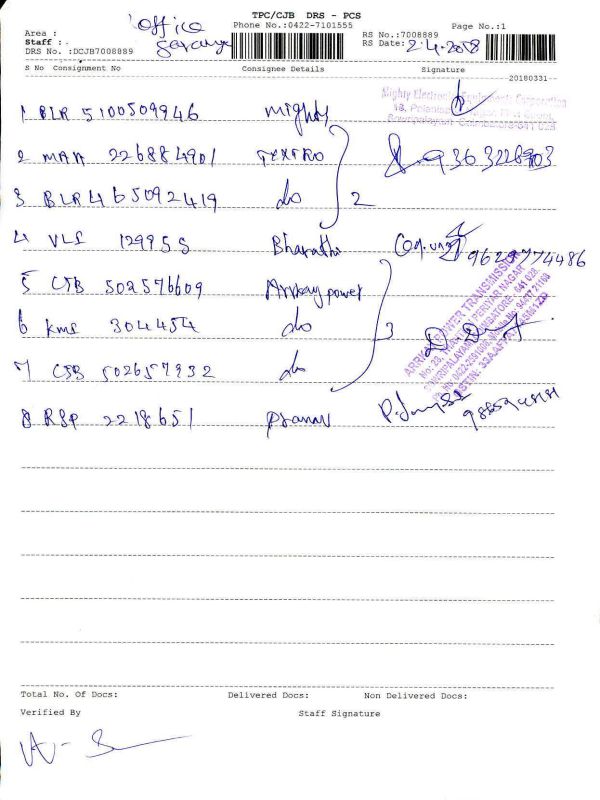 office
TPC/CJB DRS - PCS
Area :
Phone No.:0422-7101555
RS No.:7008889
Page No.:1
Staff :-
saranya
RS Date: 2-4-2018
DRS No. :DCJB7008889
S No Consignment No Consignee Details Signature
20180331--
Mighty Electronic Equipments Corporation
1 BLR 5100509946 mighty
2 MAA 226884901 TEXPRO
3 BLR 465092419 do 2
4 VLS 129955 Bharathi 9629774486
5 CJB 502576609 Arrkay power
6 KMS 304454 do 3
7 CJB 502657932 do
ARRKAY POWER TRANSMISSION
8 RSP 2218651 pranav
Total No. Of Docs: Delivered Docs: Non Delivered Docs:
Verified By Staff Signature